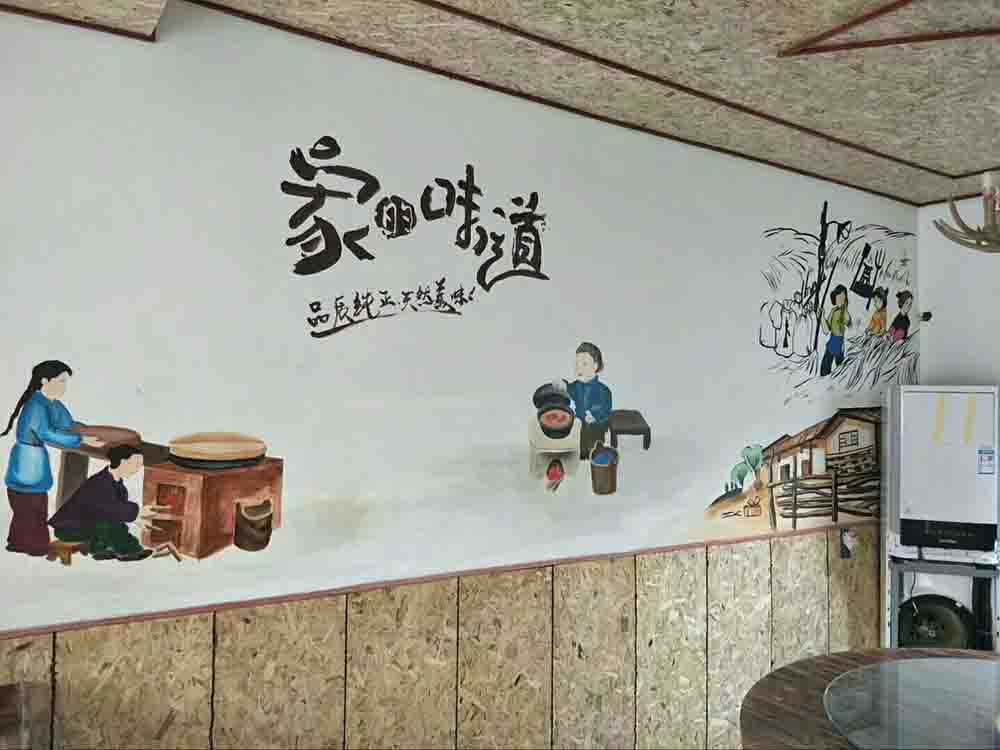 家的味道
品质纯正·天然美味!